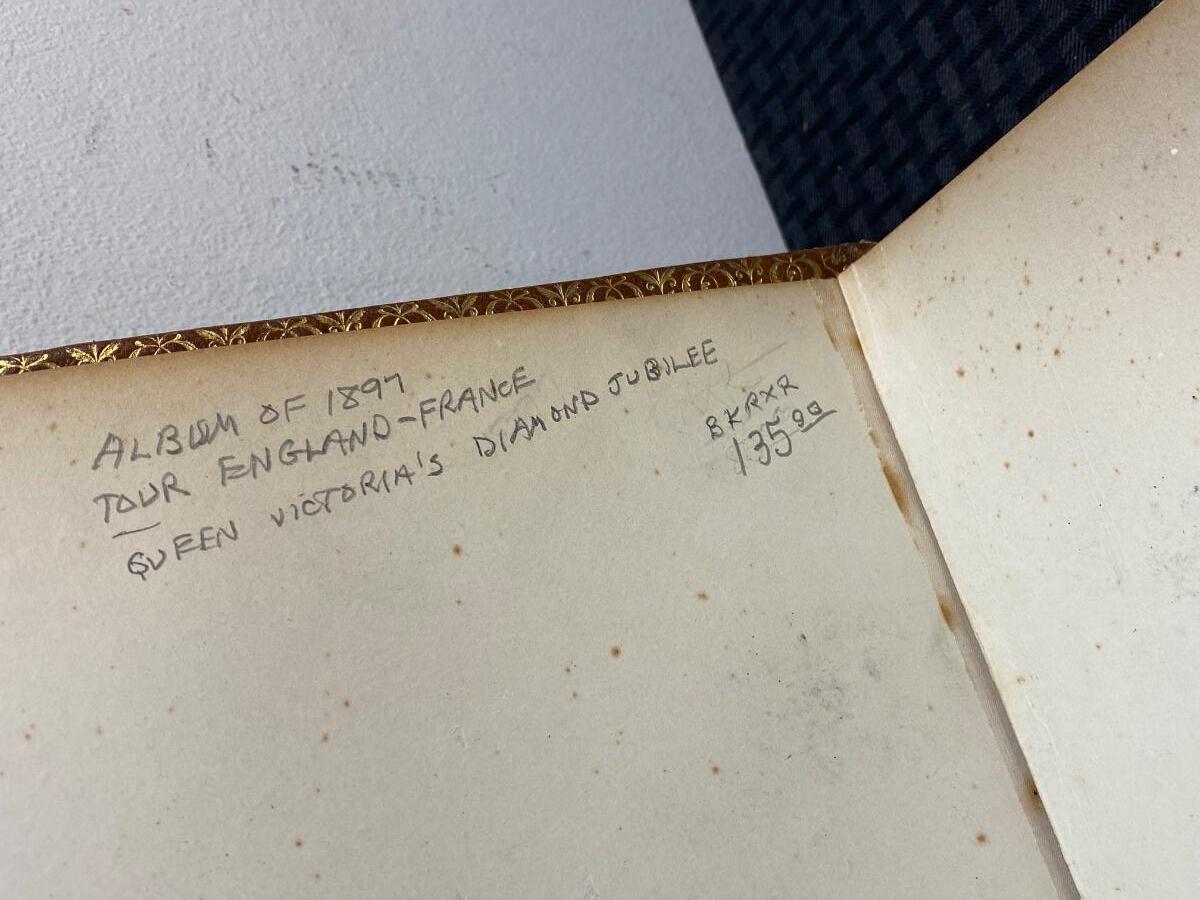 ALBUM OF 1897
TOUR ENGLAND-FRANCE
QUEEN VICTORIA'S DIAMOND JUBILEE
BKRXR
135.00